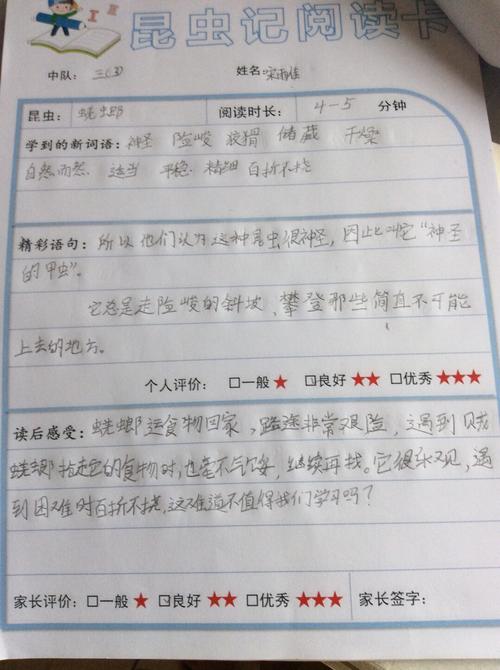 昆虫记阅读卡
中队：三(3) 姓名：宋雨佳
昆虫：蜣螂 阅读时长：4-5 分钟
学到的新词语：神圣 险峻 狡猾 储藏 干燥
自然而然 适当 平稳 精细 百折不挠
精彩语句：所以他们认为这种昆虫很神圣，因此叫它“神圣
的甲虫”。
它总是走险峻的斜坡，攀登那些简直不可能
上去的地方。
个人评价： □一般★ □良好★★ □优秀★★★
读后感受：蜣螂运食物回家，路途非常艰险，遇到贼
蜣螂抢走它的食物时，也毫不气馁，继续再找。它很乐观，遇
到困难时百折不挠，这难道不值得我们学习吗？
家长评价：□一般★ ☑良好★★ □优秀★★★ 家长签字：